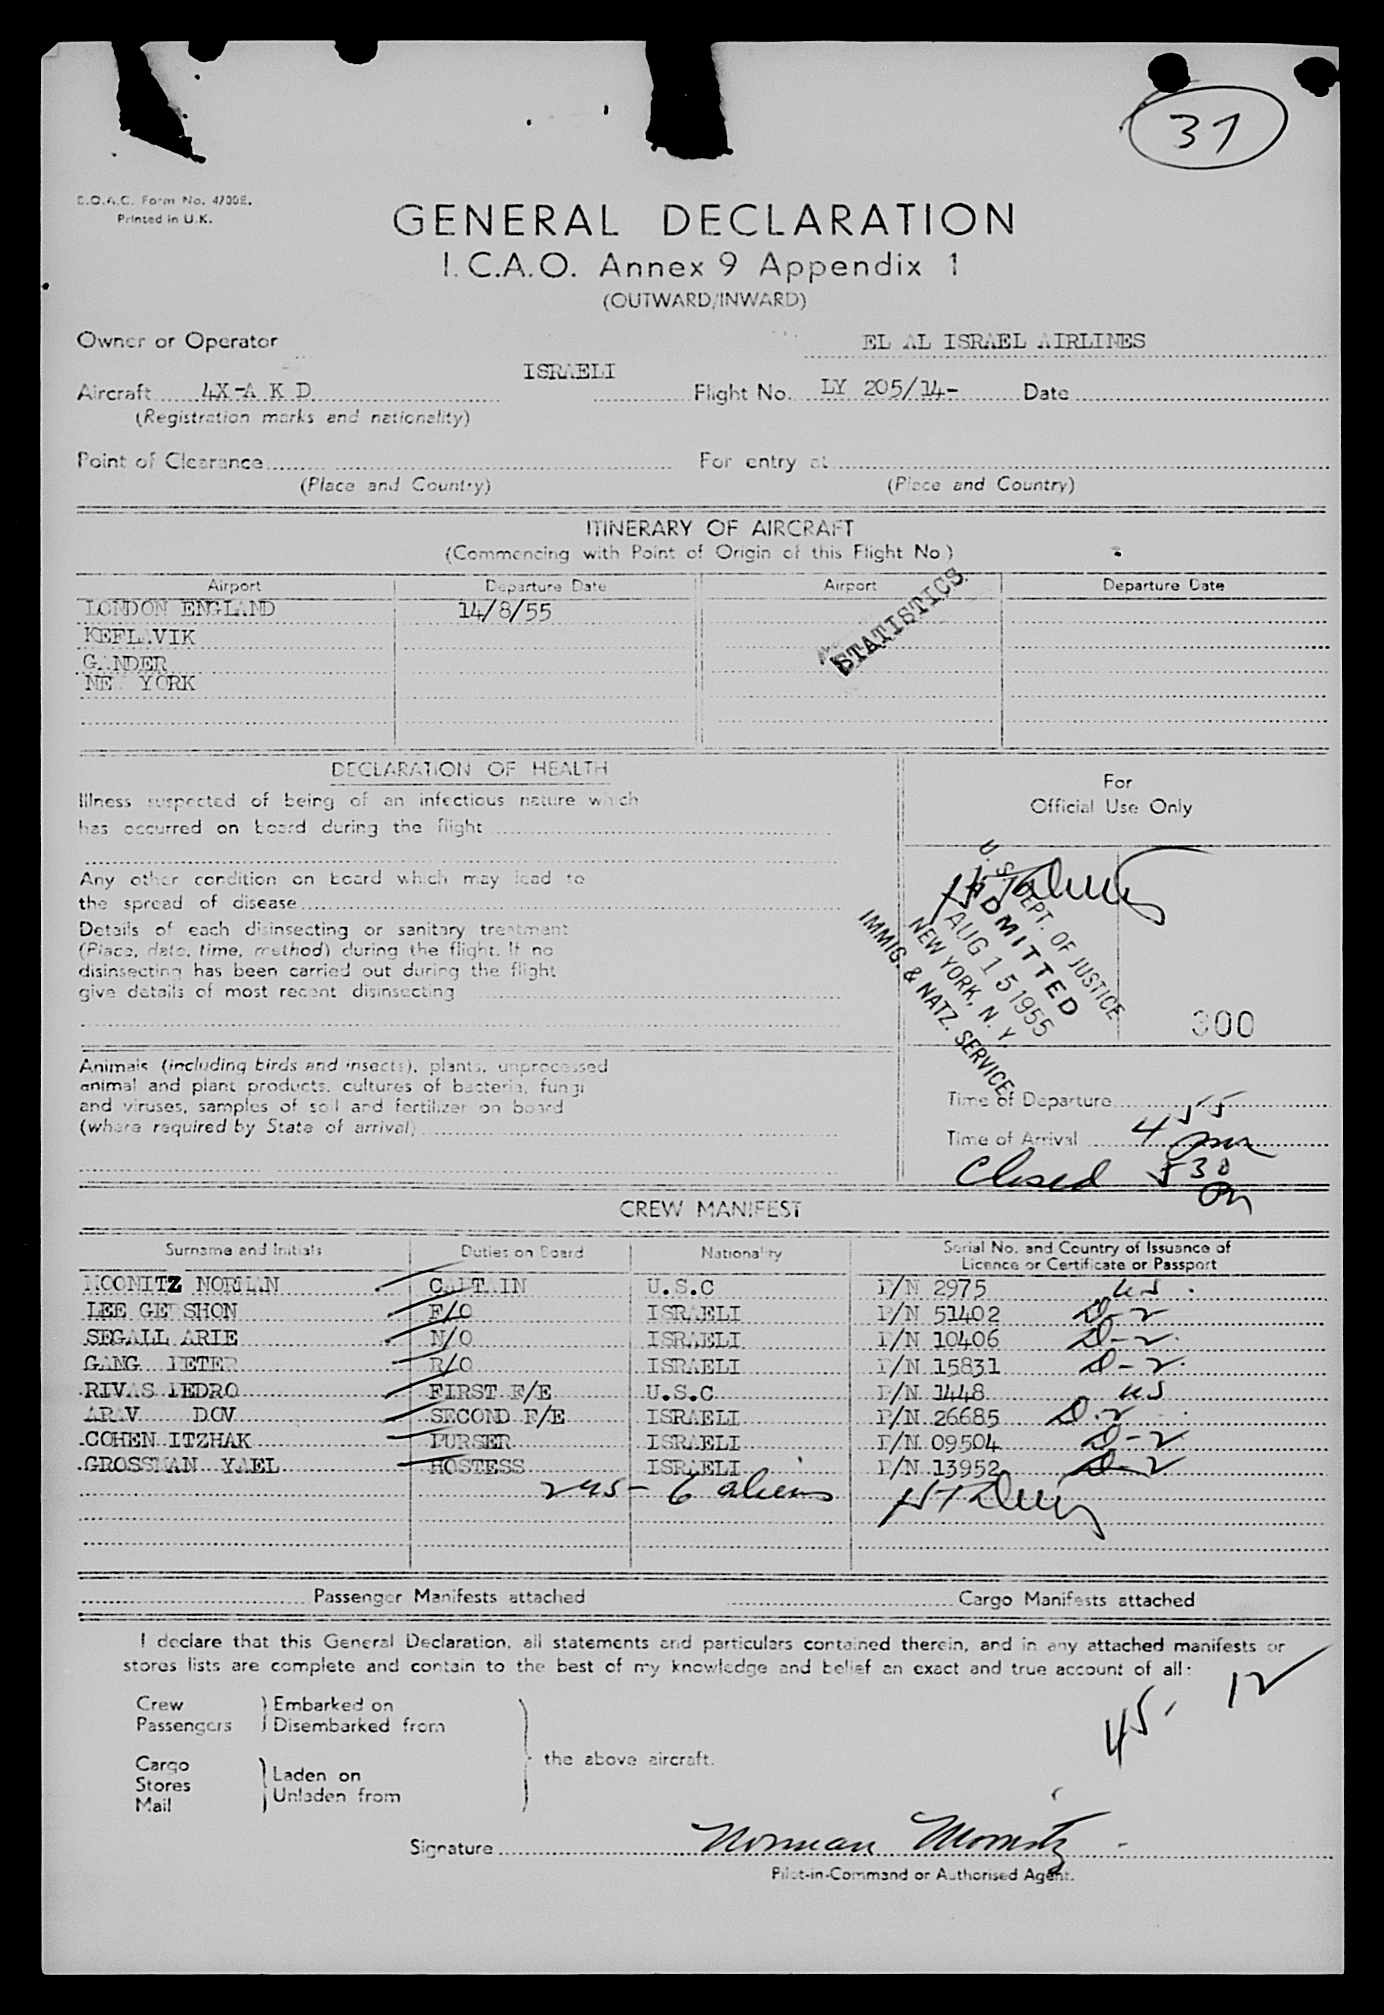 37
B.O.A.C. Form No. 4700E.
Printed in U.K.
GENERAL DECLARATION
I.C.A.O. Annex 9 Appendix 1
(OUTWARD/INWARD)
Owner or Operator EL AL ISRAEL AIRLINES
ISRAELI
Aircraft 4X-A K D Flight No. LY 205/14- Date
(Registration marks and nationality)
Point of Clearance For entry at
(Place and Country) (Place and Country)
ITINERARY OF AIRCRAFT
(Commencing with Point of Origin of this Flight No.)
Airport Departure Date Airport Departure Date
LONDON ENGLAND 14/8/55
KEFLAVIK
GANDER
NEW YORK
STATISTICS
DECLARATION OF HEALTH
Illness suspected of being of an infectious nature which
has occurred on board during the flight
Any other condition on board which may lead to
the spread of disease
Details of each disinsecting or sanitary treatment
(Place, date, time, method) during the flight. If no
disinsecting has been carried out during the flight
give details of most recent disinsecting
Animals (including birds and insects), plants, unprocessed
animal and plant products, cultures of bacteria, fungi
and viruses, samples of soil and fertilizer on board
(where required by State of arrival)
For
Official Use Only
U. S. DEPT. OF JUSTICE
ADMITTED
AUG 15 1955
NEW YORK, N. Y.
IMMIG. & NATZ. SERVICE
300
Time of Departure
Time of Arrival 4 55 pm
Closed 5 30 pm
CREW MANIFEST
Surname and Initials Duties on Board Nationality Serial No. and Country of Issuance of
Licence or Certificate or Passport
MOONITZ NORMAN CAPTAIN U.S.C P/N 2975 US
LEE GERSHON F/O ISRAELI P/N 51402 D-2
SEGALL ARIE N/O ISRAELI P/N 10406 D-2
GANG PETER R/O ISRAELI P/N 15831 D-2
RIVAS PEDRO FIRST F/E U.S.C P/N 1448 US
ARAV DOV SECOND F/E ISRAELI P/N 26685 D-2
COHEN ITZHAK PURSER ISRAELI P/N 09504 D-2
GROSSMAN YAEL HOSTESS ISRAELI P/N 13952 D-2
2 US - 6 aliens
Passenger Manifests attached Cargo Manifests attached
I declare that this General Declaration, all statements and particulars contained therein, and in any attached manifests or
stores lists are complete and contain to the best of my knowledge and belief an exact and true account of all:
Crew Embarked on
Passengers Disembarked from
the above aircraft.
Cargo
Stores Laden on
Mail Unladen from
45- 12
Signature Norman Moonitz
Pilot-in-Command or Authorised Agent.